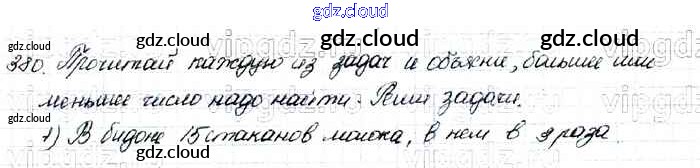 gdz.cloud
gdz.cloud gdz.cloud gdz.cloud
380. Прочитай каждую из задач и объясни, большее или
меньшее число надо найти. Реши задачи.
gdz.cloud gdz.cloud gdz.cloud
1) В бидоне 15 стаканов молока, в нем в 3 раза
gdz.cloud gdz.cloud gdz.cloud